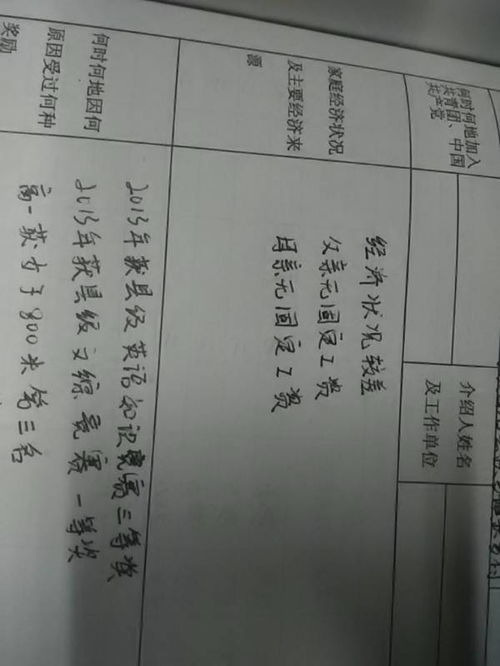 何时何地加入
共青团、中国
共产党
介绍人姓名
及工作单位
家庭经济状况
及主要经济来
源
经济状况较差
父亲无固定工资
母亲无固定工资
何时何地因何
原因受过何种
奖励
2015年获县级英语知识竞赛三等奖
2015年获县级文综竞赛一等奖
高一获女子800米第三名